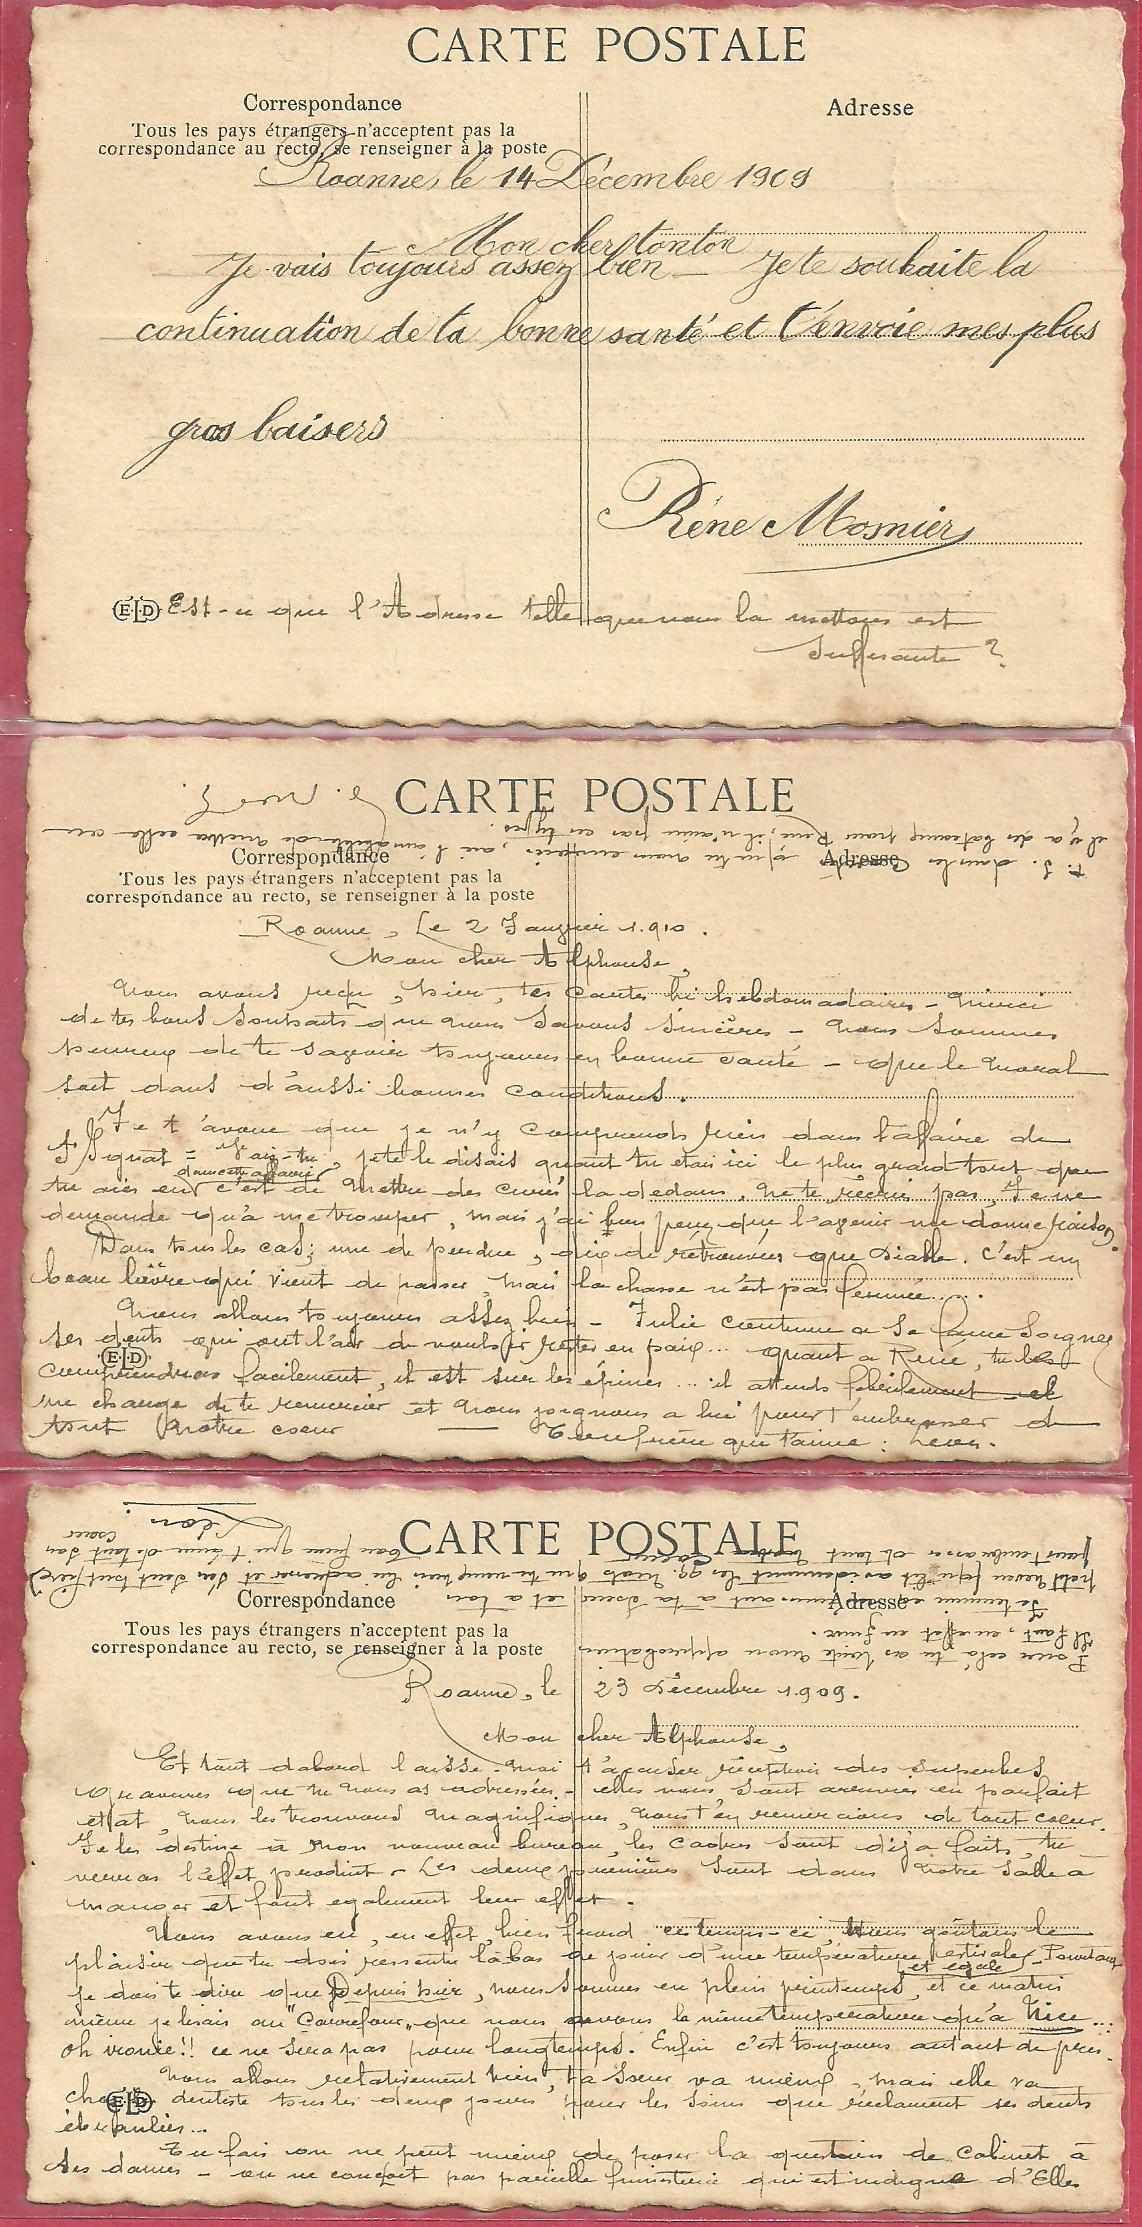 CARTE POSTALE
Correspondance
Adresse
Tous les pays étrangers n'acceptent pas la
correspondance au recto, se renseigner à la poste
Roanne, le 14 Décembre 1909
Mon cher tonton
Je vais toujours assez bien — Je te souhaite la
continuation de ta bonne santé et t'envoie mes plus
gros baisers
Réne Mosnier
ELD
Est-ce que l'Adresse telle que nous la mettons est
suffisante ?
CARTE POSTALE
Correspondance
Adresse
Tous les pays étrangers n'acceptent pas la
correspondance au recto, se renseigner à la poste
Roanne, Le 2 Janvier 1.910.
Mon cher Alphonse,
Nous avons reçu, hier, tes cartes bi hebdomadaires - Merci
de tes bons souhaits que nous savons sincères - Nous sommes
heureux de te savoir toujours en bonne santé - que le moral
soit dans d'aussi bonnes conditions.
Je t'avoue que je n'y comprends rien dans l'affaire de
Signat = Vois-tu, je te le disais quand tu étais ici le plus grand tort que
tu aies eu dans cette affaire c'est de mettre des curés la dedans. Ne te récrie pas, Je ne
demande qu'à me tromper, mais j'ai bien peur que l'avenir me donne raison.
Dans tous les cas, une de perdue, dix de retrouvées que diable. C'est un
beau lièvre qui vient de passer, mais la chasse n'est pas fermée.....
Nous allons toujours assez bien - Julie continue a se faire soigner
ses dents qui ont l'air de vouloir rester en paix... quant a René, tu le
comprendras facilement, il est sur les épines... il attend fébrilement
me charge de te remercier et nous joignons a lui pour t'embrasser de
tout notre coeur — Ton frère qui t'aime : Léon.
ELD
P.S. dans les
il y a des bateaux pour René, il n'aura pas
CARTE POSTALE
Correspondance
Adresse
Tous les pays étrangers n'acceptent pas la
correspondance au recto, se renseigner à la poste
Roanne, le 23 Décembre 1.909.
Mon cher Alphonse,
Et tout d'abord laisse-moi t'accuser réception des superbes
gravures que tu nous as adressées - elles nous sont arrivées en parfait
etat, nous les trouvons magnifiques, nous t'en remercions de tout coeur.
Je les destine à mon nouveau bureau, les cadres sont déjà faits, tu
verras l'effet produit - Les deux premières sont dans notre salle a
manger et font egalement leur effet.
Nous avons eu, en effet, bien froid ce temps-ci, Nous goûtons le
plaisir que tu dois ressentir là bas de jouir d'une température estivale et egale - Pourtant
je dois te dire que Depuis hier, nous sommes en plein printemps, et ce matin
même je lisais au "Carrefour" que nous avons la même température qu'a Nice...
oh ironie!! ce ne sera pas pour longtemps. Enfin c'est toujours autant de pris.
Nous allons relativement bien, ta soeur va mieux, mais elle va
chez le dentiste tous les deux jours pour les soins que réclament ses dents
ébranlées...
Tu fais on ne peut mieux de poser la question de Cabinet à
Ses dames - on ne conçoit pas pareille fumisterie qui est indigne d'Elles
ELD
Pour cela tu as toute mon approbation
Il faut, en effet en finir.
Je termine en
petit neveu (qui lit avidement les gds mots que tu veux bien lui adresser et d'en sont tout fier)
pour t'embrasser de tout notre coeur
Ton frère qui t'aime de tout son
coeur
Léon.